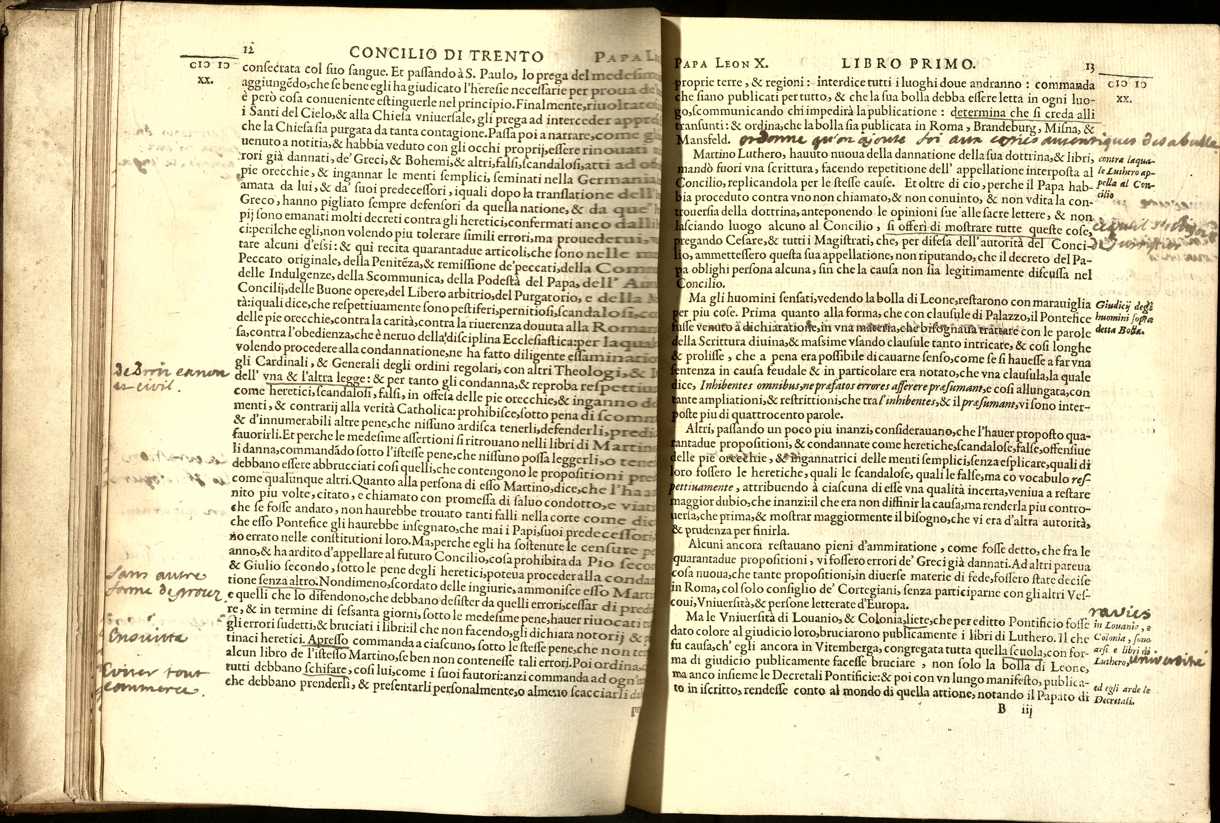 12 CONCILIO DI TRENTO
CIↃ IↃ
XX.
consecrata col suo sangue. Et passando à S. Paulo, lo prega del medesimo
aggiungẽdo, che se bene egli ha giudicato l'heresie necessarie per proua de
è però cosa conueniente estinguerle nel principio. Finalmente, riuoltato
i Santi del Cielo, & alla Chiesa vniuersale, gli prega ad interceder appre
che la Chiesa sia purgata da tanta contagione. Passa poi a narrare, come
uenuto a notitia, & habbia veduto con gli occhi proprij, essere rinouati
rori già dannati, de' Greci, & Bohemi, & altri, falsi, scandalosi, atti ad
pie orecchie, & ingannar le menti semplici, seminati nella Germania
amata da lui, & da' suoi predecessori, iquali dopo la translatione dell'
Greco, hanno pigliato sempre defensori da quella natione, & da que'
pij sono emanati molti decreti contra gli heretici, confermati anco dalli
ci: perilche egli, non volendo piu tolerare simili errori, ma prouederui,
tare alcuni d'essi: & qui recita quarantadue articoli, che sono nelle
Peccato originale, della Penitẽza, & remissione de' peccati, della
delle Indulgenze, della Scommunica, della Podestà del Papa, dell'
Concilij, delle Buone opere, del Libero arbitrio, del Purgatorio, e della
tà: iquali dice, che respettiuamente sono pestiferi, pernitiosi, scandalosi,
delle pie orecchie, contra la carità, contra la riuerenza douuta alla Romana
sa, contra l'obedienza, che è neruo della disciplina Ecclesiastica: per laqual
volendo procedere alla condannatione, ne ha fatto diligente essaminatione
gli Cardinali, & Generali degli ordini regolari, con altri Theologi, &
dell' vna & l'altra legge: & per tanto gli condanna, & reproba respettiua
come heretici, scandalosi, falsi, in offesa delle pie orecchie, & inganno
menti, & contrarij alla verità Catholica: prohibisce, sotto pena di scom
& d'innumerabili altre pene, che nissuno ardisca tenerli, defenderli, predi
fauorirli. Et perche le medesime assertioni si ritrouano nelli libri di Martino
li danna, commandãdo sotto l'istesse pene, che nissuno possa leggerli, o tene
debbano essere abbrucciati così quelli, che contengono le propositioni pre
come qualunque altri. Quanto alla persona di esso Martino, dice, che l'ha
nito piu volte, citato, e chiamato con promessa di saluo condotto, e viati
che se fosse andato, non haurebbe trouato tanti falli nella corte come dic
che esso Pontefice gli haurebbe insegnato, che mai i Papi, suoi predecessori,
no errato nelle constitutioni loro. Ma, perche egli ha sostenute le censure
anno, & ha ardito d'appellare al futuro Concilio, cosa prohibita da Pio seco
& Giulio secondo, sotto le pene degli heretici, poteua proceder alla conda
tione senza altro. Nondimeno, scordato delle ingiurie, ammonisce esso Martino
e quelli che lo difendono, che debbano desister da quelli errori, cessar di pred
re, & in termine di sessanta giorni, sotto le medesime pene, hauer riuocati
gli errori sudetti, & bruciati i libri: il che non facendo, gli dichiara notorij &
tinaci heretici. Apresso commanda a ciascuno, sotto le stesse pene, che non
alcun libro de l'istesso Martino, se ben non contenesse tali errori. Poi ordina,
tutti debbano schifare, così lui, come i suoi fautori: anzi commanda ad ogn'
che debbano prenderli, & presentarli personalmente, o almeno scacciarli
de Droit canon
et civil.
sans autre
forme de proces
Ensuitte
Eviter tout
commerce.
PAPA LEON X. LIBRO PRIMO. 13
CIↃ IↃ
XX.
proprie terre, & regioni: interdice tutti i luoghi doue andranno: commanda
che siano publicati per tutto, & che la sua bolla debba essere letta in ogni luo-
go, scommunicando chi impedirà la publicatione: determina che si creda alli
transunti: & ordina, che la bolla sia publicata in Roma, Brandeburg, Misna, &
Mansfeld. ordonne qu'on ajoute foi aux copies autentiques de sa bulle
Martino Luthero, hauuto nuoua della dannatione della sua dottrina, & libri,
mandò fuori vna scrittura, facendo repetitione dell' appellatione interposta al
Concilio, replicandola per le stesse cause. Et oltre di cio, perche il Papa hab-
bia proceduto contra vno non chiamato, & non conuinto, & non vdita la con-
trouersia della dottrina, anteponendo le opinioni sue alle sacre lettere, & non
lasciando luogo alcuno al Concilio, si offerì di mostrare tutte queste cose,
pregando Cesare, & tutti i Magistrati, che, per difesa dell' autorità del Conci-
lio, ammettessero questa sua appellatione, non riputando, che il decreto del Pa-
pa oblighi persona alcuna, sin che la causa non sia legitimamente discussa nel
Concilio.
contra laqua-
le Luthero ap-
pella al Con-
cilio
Ma gli huomini sensati, vedendo la bolla di Leone, restarono con marauiglia
per piu cose. Prima quanto alla forma, che con clausule di Palazzo, il Pontefice
fusse venuto à dichiaratione, in vna materia, che bisognaua trattare con le parole
della Scrittura diuina, & massime vsando clausule tanto intricate, & così longhe
& prolisse, che a pena era possibile di cauarne senso, come se si hauesse a far vna
sentenza in causa feudale & in particolare era notato, che vna clausula, la quale
dice, Inhibentes omnibus, ne præfatos errores asserere præsumant, e così allungata, con
tante ampliationi, & restrittioni, che tra l'inhibentes, & il præsumant, vi sono inter-
poste piu di quattrocento parole.
Giudicij degli
huomini sopra
detta Bolla.
Altri, passando un poco piu inanzi, considerauano, che l'hauer proposto qua-
rantadue propositioni, & condannate come heretiche, scandalose, false, offensiue
delle pie orecchie, & ingannatrici delle menti semplici, senza esplicare, quali di
loro fossero le heretiche, quali le scandalose, quali le false, ma co vocabulo res-
pettiuamente, attribuendo à ciascuna di esse vna qualità incerta, veniua a restare
maggior dubio, che inanzi: il che era non diffinir la causa, ma renderla piu contro-
uersa, che prima, & mostrar maggiormente il bisogno, che vi era d'altra autorità,
& prudenza per finirla.
Alcuni ancora restauano pieni d'ammiratione, come fosse detto, che fra le
quarantadue propositioni, vi fossero errori de' Greci già dannati. Ad altri pareua
cosa nuoua, che tante propositioni, in diuerse materie di fede, fossero state decise
in Roma, col solo consiglio de' Cortegiani, senza participarne con gli altri Ves-
coui, Vniuersità, & persone letterate d'Europa.
Ma le Vniuersità di Louanio, & Colonia, liete, che per editto Pontificio fosse
dato colore al giudicio loro, bruciarono publicamente i libri di Luthero. Il che
fu causa, ch' egli ancora in Vitemberga, congregata tutta quella scuola, con for-
ma di giudicio publicamente facesse bruciare, non solo la bolla di Leone,
ma anco insieme le Decretali Pontificie: & poi con vn lungo manifesto, publica-
to in iscritto, rendesse conto al mondo di quella attione, notando il Papato di
B iij
ravies
in Louanio, e
Colonia, sono
arsi e libri di
Luthero, université
ed egli arde le
Decretali.